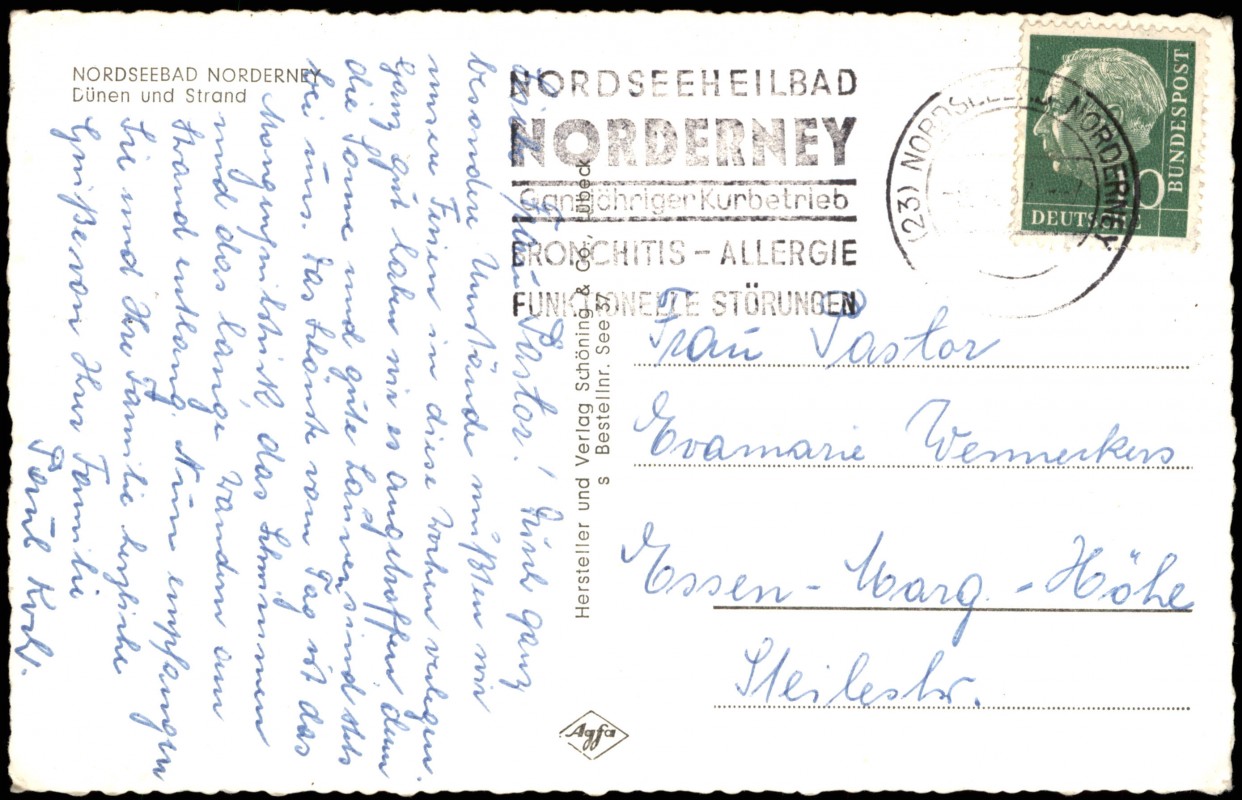 NORDSEEBAD NORDERNEY
Dünen und Strand
Liebe Frau Pastor! Durch ganz
besondere Umstände mußten wir
unsere Ferien in diese Wochen verlegen.
Ganz gut haben wir es angetroffen, denn
die Sonne und gute Launen sind stets
bei uns. Das Schönste vom Tag ist das
Morgenfrühstück, das Schwimmen
und das lange Wandern am
Strand entlang. Nun empfangen
Sie und Ihre Familie herzliche
Grüße von Ihrer Familie
Paul Koch.
Hersteller und Verlag Schöning & Co., Lübeck
s Bestellnr. See 37
Agfa
NORDSEEHEILBAD
NORDERNEY
Ganzjähriger Kurbetrieb
BRONCHITIS - ALLERGIE
FUNKTIONELLE STÖRUNGEN
(23) NORDSEEBAD NORDERNEY
DEUTSCHE
BUNDESPOST
Frau Pastor
Evamarie Wennekers
Essen - Marg. - Höhe
Steilestr.